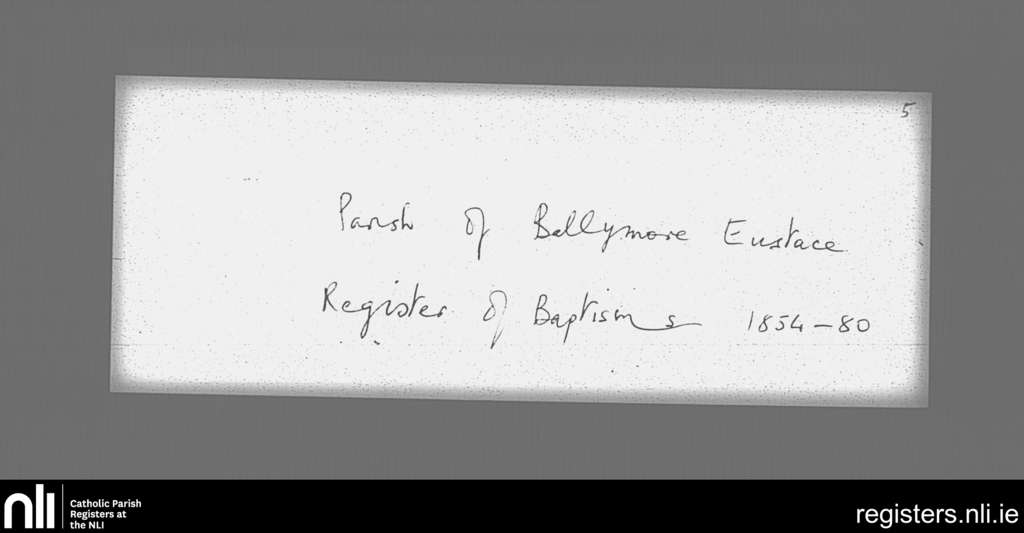 5
Parish of Ballymore Eustace
Register of Baptisms 1854-80
nli
Catholic Parish
Registers at
the NLI
registers.nli.ie